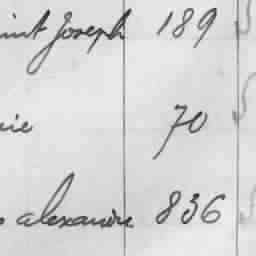 int Joseph 189
ie 70
alexandre 836